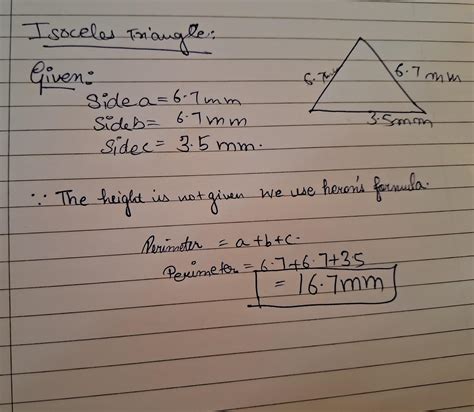 Isoceles Triangle:
Given:
Side a = 6.7 mm
Side b = 6.7 mm
Side c = 3.5 mm.
6.7
6.7 mm
3.5mm
∵ The height is not given we use heron's formula.
Perimeter = a+b+c.
Perimeter = 6.7+6.7+3.5
= 16.7mm